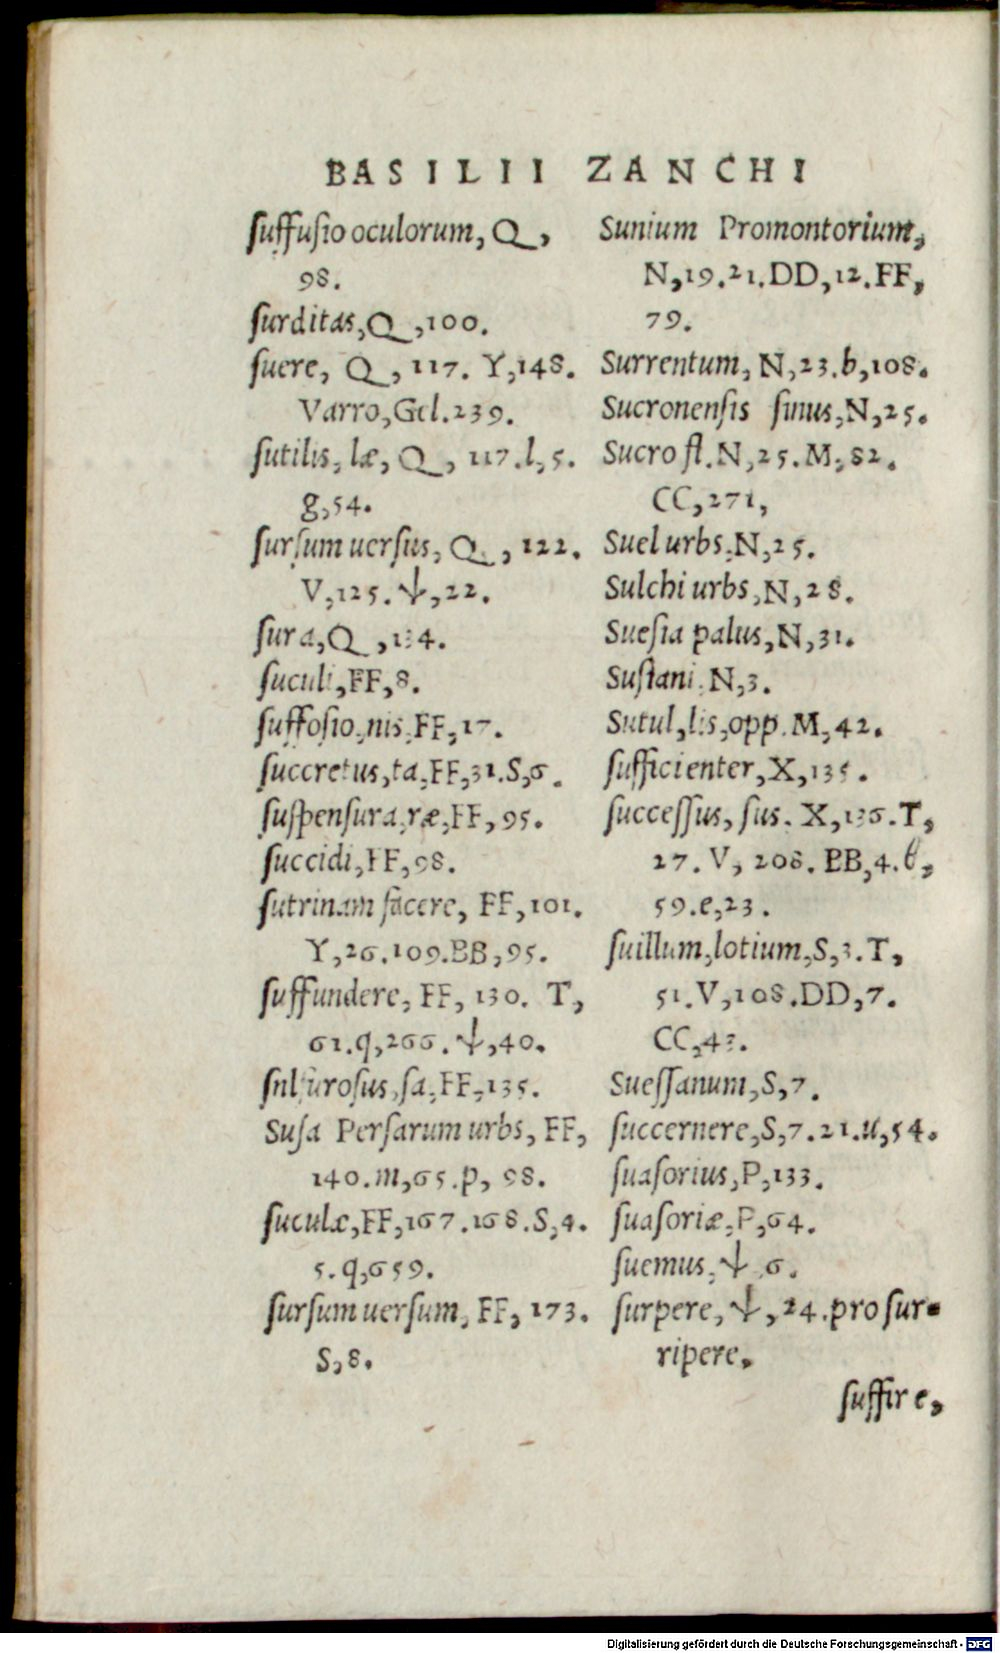 BASILII ZANCHI
suffusio oculorum, Q,
98.
surditas, Q, 100.
suere, Q, 117. Y, 148.
Varro, Gel. 239.
sutilis, læ, Q, 117. l, 5.
g, 54.
sursum uersus, Q, 122.
V, 125. ψ, 22.
sura, Q, 134.
suculi, FF, 8.
suffosio, nis, FF, 17.
succretus, ta, FF, 31. S, 6.
suspensura, ræ, FF, 95.
succidi, FF, 98.
sutrinam facere, FF, 101.
Y, 26. 109. BB, 95.
suffundere, FF, 130. T,
61. q, 266. ψ, 40.
snlfurosus, sa, FF, 135.
Susa Persarum urbs, FF,
140. m, 65. p, 98.
suculæ, FF, 167. 168. S, 4.
5. q, 659.
sursum uersum, FF, 173.
S, 8.
Sunium Promontorium,
N, 19. 21. DD, 12. FF,
79.
Surrentum, N, 23. b, 108.
Sucronensis sinus, N, 25.
Sucro fl. N, 25. M, 82.
CC, 271,
Suel urbs, N, 25.
Sulchi urbs, N, 28.
Suesia palus, N, 31.
Sustani, N, 3.
Sutul, lis, opp. M, 42.
sufficienter, X, 135.
successus, sus. X, 136. T,
27. V, 208. BB, 4. b,
59. e, 23.
suillum, lotium, S, 3. T,
51. V, 108. DD, 7.
CC, 43.
Suessanum, S, 7.
succernere, S, 7. 21. u, 54.
suasorius, P, 133.
suasoriæ, P, 64.
suemus, ψ, 6.
surpere, ψ, 24. pro sur-
ripere.
suffire,
Digitalisierung gefördert durch die Deutsche Forschungsgemeinschaft - DFG